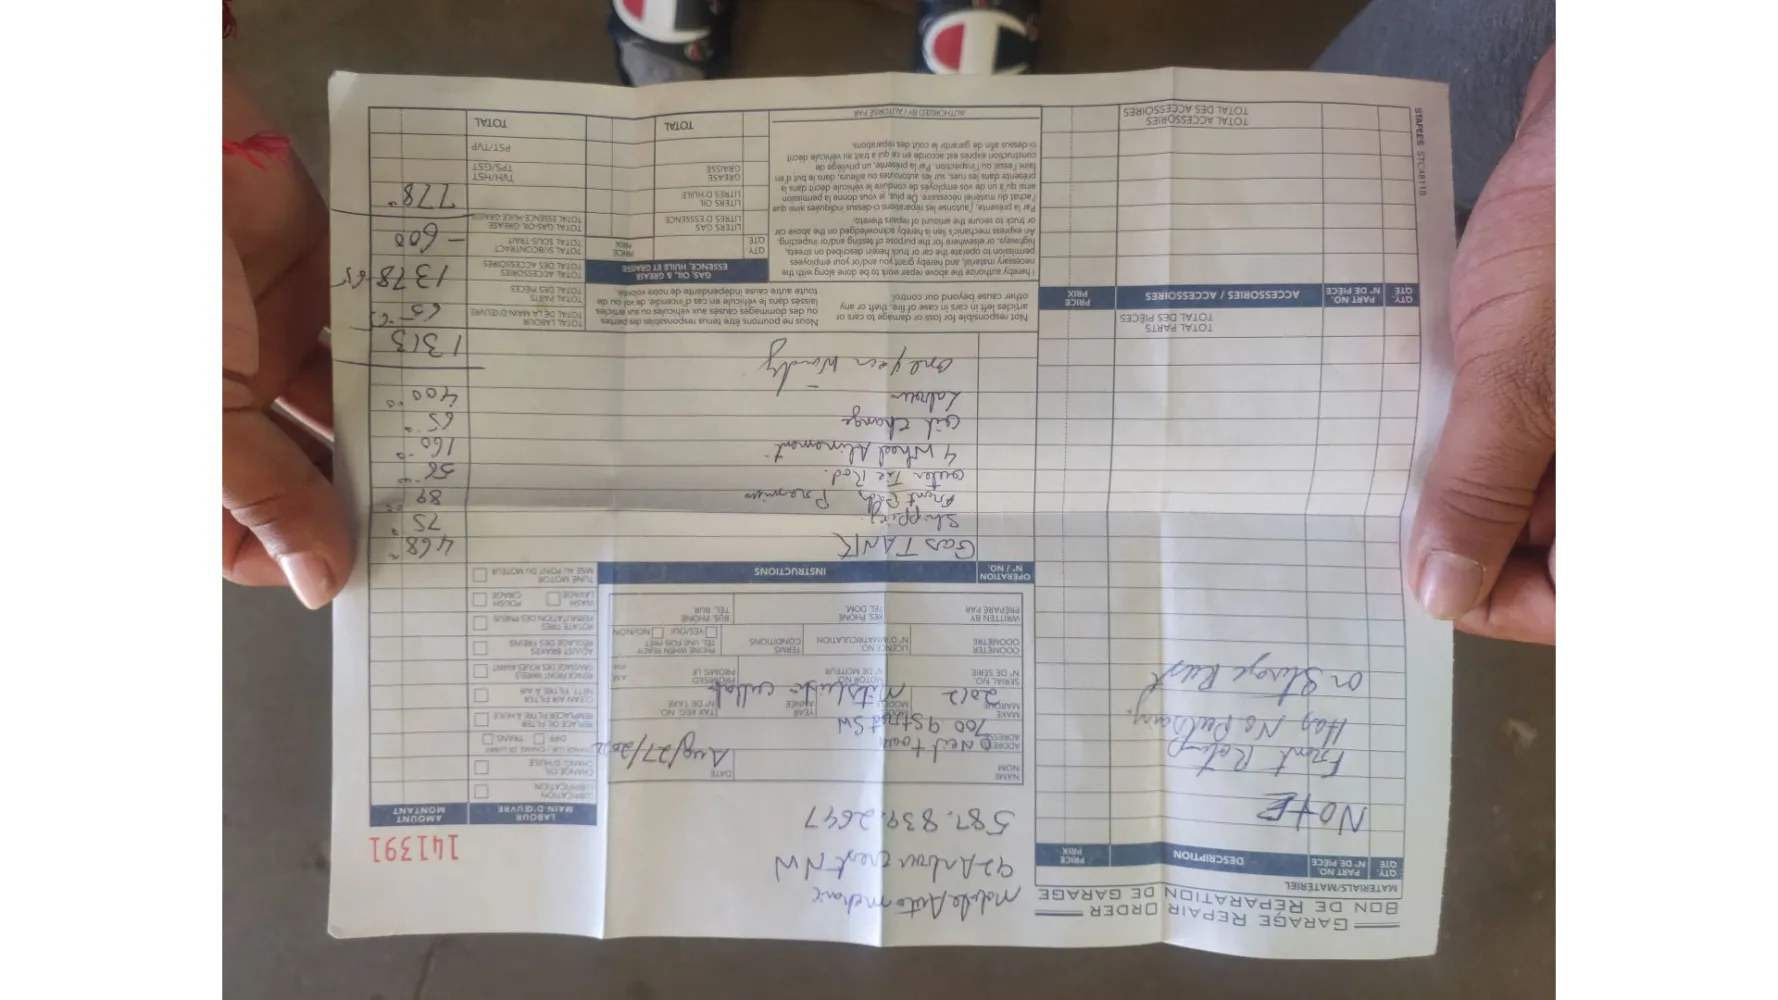 GARAGE REPAIR ORDER
BON DE RÉPARATION DE GARAGE
MATERIALS/MATÉRIEL
QTY. QTÉ
PART NO. Nº DE PIÈCE
DESCRIPTION
PRICE PRIX
NOTE
Front Rotor
Has No Pulsing
on Sturge Rust
TOTAL PARTS
TOTAL DES PIÈCES
QTY. QTÉ
PART NO. Nº DE PIÈCE
ACCESSORIES / ACCESSOIRES
PRICE PRIX
TOTAL ACCESSORIES
TOTAL DES ACCESSOIRES
STAPLES
Mobile Auto mechanic
92 Arbour crest NW
587.839.2647
141391
NAME NOM
DATE
Aug/27/2022
ADDRESS ADRESSE
700 9 Street SW
MAKE MARQUE
MODEL MODÈLE
YEAR ANNÉE
TAX REG. NO. Nº DE TAXE
2012
SERIAL NO. Nº DE SÉRIE
MOTOR NO. Nº DE MOTEUR
PROMISED PROMIS LE
A.M.
P.M.
ODOMETER ODOMÈTRE
LICENCE NO. Nº D'IMMATRICULATION
TERMS CONDITIONS
PHONE WHEN READY
TEL. UNE FOIS PRÊT
YES/OUI NO/NON
WRITTEN BY PRÉPARÉ PAR
RES. PHONE TÉL. DOM.
BUS. PHONE TÉL. BUR.
LABOUR MAIN-D'ŒUVRE
AMOUNT MONTANT
LUBRICATION
LUBRIFICATION
CHANGE OIL
CHANG. D'HUILE
DIFF. TRANS.
REPLACE OIL FILTER
REMPLACER FILTRE À HUILE
CLEAN AIR FILTER
NETT. FILTRE À AIR
REPACK FRONT WHEELS
GRAISSAGE DES ROUES AVANT
ADJUST BRAKES
RÉGLAGE DES FREINS
ROTATE TIRES
PERMUTATION DES PNEUS
WASH LAVAGE
POLISH CIRAGE
TUNE MOTOR
MISE AU POINT DU MOTEUR
OPERATION Nº / NO.
INSTRUCTIONS
Gas TANK 468
Shipping 75
Front Pads Premium 89
outer Tie Rod. 56
4 Wheel Alinement 160
oil change 65
Labour 400
one year Wandy
1313
65
1378.65
- 600
778
Not responsible for loss or damage to cars or
articles left in cars in case of fire, theft or any
other cause beyond our control.
Nous ne pourrons être tenus responsables des pertes
ou des dommages causés aux véhicules ou aux articles
laissés dans le véhicule en cas d'incendie, de vol ou de
toute autre cause indépendante de notre volonté.
TOTAL LABOUR
TOTAL DE LA MAIN-D'ŒUVRE
TOTAL PARTS
TOTAL DES PIÈCES
TOTAL ACCESSORIES
TOTAL DES ACCESSOIRES
TOTAL SUBCONTRACT
TOTAL SOUS-TRAIT.
TOTAL GAS-OIL-GREASE
TOTAL ESSENCE-HUILE-GRAISSE
TVH/HST
TPS/GST
PST/TVP
TOTAL
I hereby authorize the above repair work to be done along with the
necessary material, and hereby grant you and/or your employees
permission to operate the car or truck herein described on streets,
highways, or elsewhere for the purpose of testing and/or inspecting.
An express mechanic's lien is hereby acknowledged on the above car
or truck to secure the amount of repairs thereto.
Par la présente, j'autorise les réparations ci-dessus indiquées ainsi que
l'achat du matériel nécessaire. De plus, je vous donne la permission
ainsi qu'à un de vos employés de conduire le véhicule décrit dans la
présente dans les rues, sur les autoroutes ou ailleurs, dans le but d'en
faire l'essai ou l'inspection. Par la présente, un privilège de
construction exprès est accordé en ce qui a trait au véhicule décrit
ci-dessus afin de garantir le coût des réparations.
AUTHORIZED BY / AUTORISÉ PAR
GAS, OIL & GREASE
ESSENCE, HUILE ET GRAISSE
QTY. QTÉ
PRICE PRIX
LITERS GAS
LITRES D'ESSENCE
LITERS OIL
LITRES D'HUILE
GREASE
GRAISSE
TOTAL